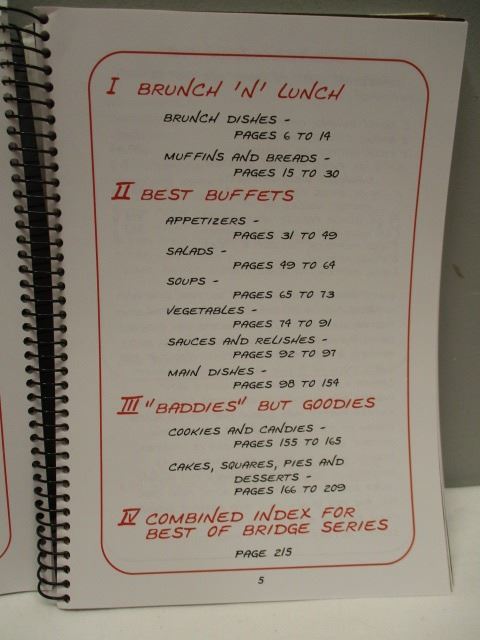 I BRUNCH 'N' LUNCH
BRUNCH DISHES -
PAGES 6 TO 14
MUFFINS AND BREADS -
PAGES 15 TO 30
II BEST BUFFETS
APPETIZERS -
PAGES 31 TO 49
SALADS -
PAGES 49 TO 64
SOUPS -
PAGES 65 TO 73
VEGETABLES -
PAGES 74 TO 91
SAUCES AND RELISHES -
PAGES 92 TO 97
MAIN DISHES -
PAGES 98 TO 154
III "BADDIES" BUT GOODIES
COOKIES AND CANDIES -
PAGES 155 TO 165
CAKES, SQUARES, PIES AND
DESSERTS -
PAGES 166 TO 209
IV COMBINED INDEX FOR
BEST OF BRIDGE SERIES
PAGE 215
5